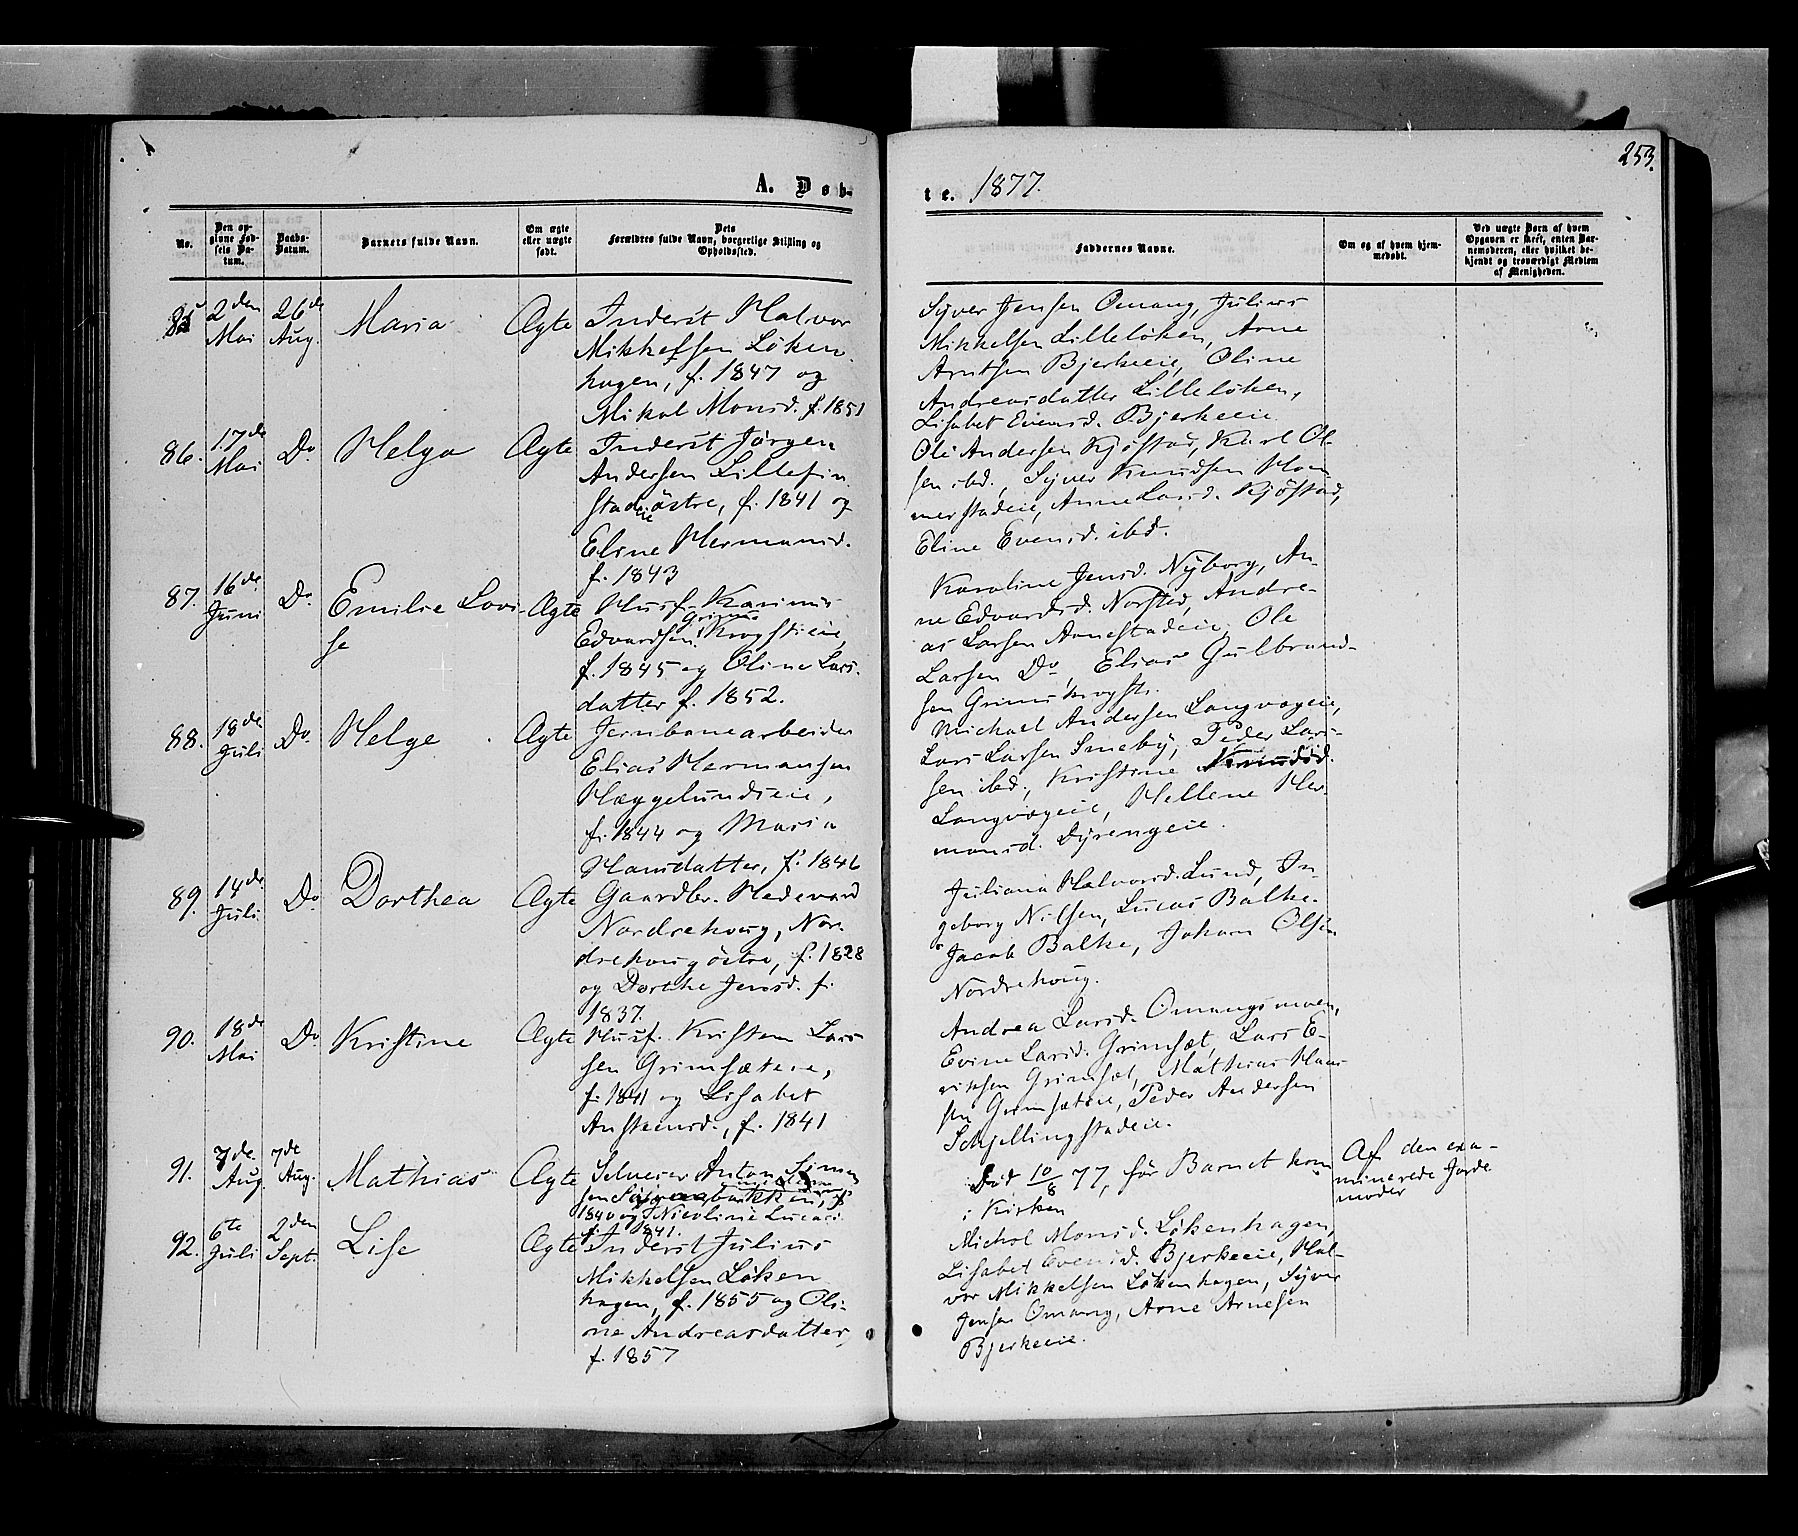 253.
A. Døb-
te. 1877.
No.
Den op-
givne Fød-
sels Da-
tum.
Daabs-
Datum.
Barnets fulde Navn.
Om ægte
eller uægte
født.
Dets
Forældres fulde Navn, borgerlige Stilling og
Opholdssted.
Faddernes Navne.
Om og af hvem hjem-
medøbt.
Ved uægte Børn af hvem
Opgaven er skeet, enten Bar-
nemoderen, eller hvilket be-
kjendt og troværdigt Medlem
af Menigheden.
85
2den
Mai
26de
Aug.
Maria
Ægte
Inderst Halvor
Mikkelsen Løken-
hagen, f. 1847 og
Mikal Monsd. f. 1851
Syver Jensen Omang, Julius
Mikkelsen Lilleløken, Arne
Arntsen Bjerkeeie, Oline
Andreasdatter Lilleløken,
Lisabet Evensd. Bjerkeeie
86.
17de
Mai
Do
Helga
Ægte
Inderst Jørgen
Andersen Lillefin
stadeie østre, f. 1841 og
Eline Hermansd.
f. 1843
Ole Andersen Kjøstad, Karl Ol-
sen ibd., Syver Knudsen Ham
merstadeie, Anne Larsd. Kjøstad,
Eline Evensd. ibd.
87.
16de
Juni
Do.
Emilie Lovi-
se
Ægte
Husf. Karinus
Edvardsen Grimskrogstieie,
f. 1845 og Oline Lars-
datter f. 1852.
Karoline Jensd. Nyborg, An-
ne Edvardsd. Norsted, Andre-
as Larsen Arnestadeie, Ole
Larsen Do, Elias Gulbrand-
sen Grimskrogst.
88.
18de
Juli
Do.
Helge
Ægte
Jernbanearbeider
Elias Hermansen
Hæggelundseie,
f. 1844 og Maria
Hansdatter, f. 1846
Michael Andersen Langvageie,
Lars Larsen Smeby, Peder Lar-
sen ibd., Kristine
Langvageie, Hellene Her
mansd. Dyrengeie.
89.
14de
Juli
Do
Dorthea
Ægte
Gaardbr. Hedevard
Nordrehoug, Nor-
drehoug østre, f. 1828
og Dorthe Jensd. f.
1837.
Juliana Halvorsd. Lund, In-
geborg Nilsen, Lucas Balke
Jacob Balke, Johan Olsen
Nordrehoug.
90.
18de
Mai
Do
Kristine
Ægte
Husf. Kristen Lar-
sen Grimsæteie,
f. 1841 og Lisabet
Anstensd., f. 1841
Andrea Larsd. Omangsmoen,
Evine Larsd. Grimsæt, Lars E-
riksen Grimsæt, Mathias Han
sen Grimsæteie, Peder Andersen
Schjellingstadeie.
91.
7de
Aug.
7de
Aug.
Mathias
Ægte
Selveier Anton Simen
sen
1840 og Nicoline Lucasd.
f. 1841.
Død 10/8 77, før Barnet kom
i Kirken
Af den exa-
minerede Jorde
moder
92.
6te
Juli
2den
Sept.
Lise
Ægte
Inderst Julius
Mikkelsen Løken
hagen, f. 1855 og Oli-
ne Andreasdatter,
f. 1857
Michol Monsd. Løkenhagen,
Lisabet Evensd. Bjerkeeie, Hal-
vor Mikkelsen Løkenhagen, Syver
Jensen Omang, Arne Arnesen
Bjerkeeie.